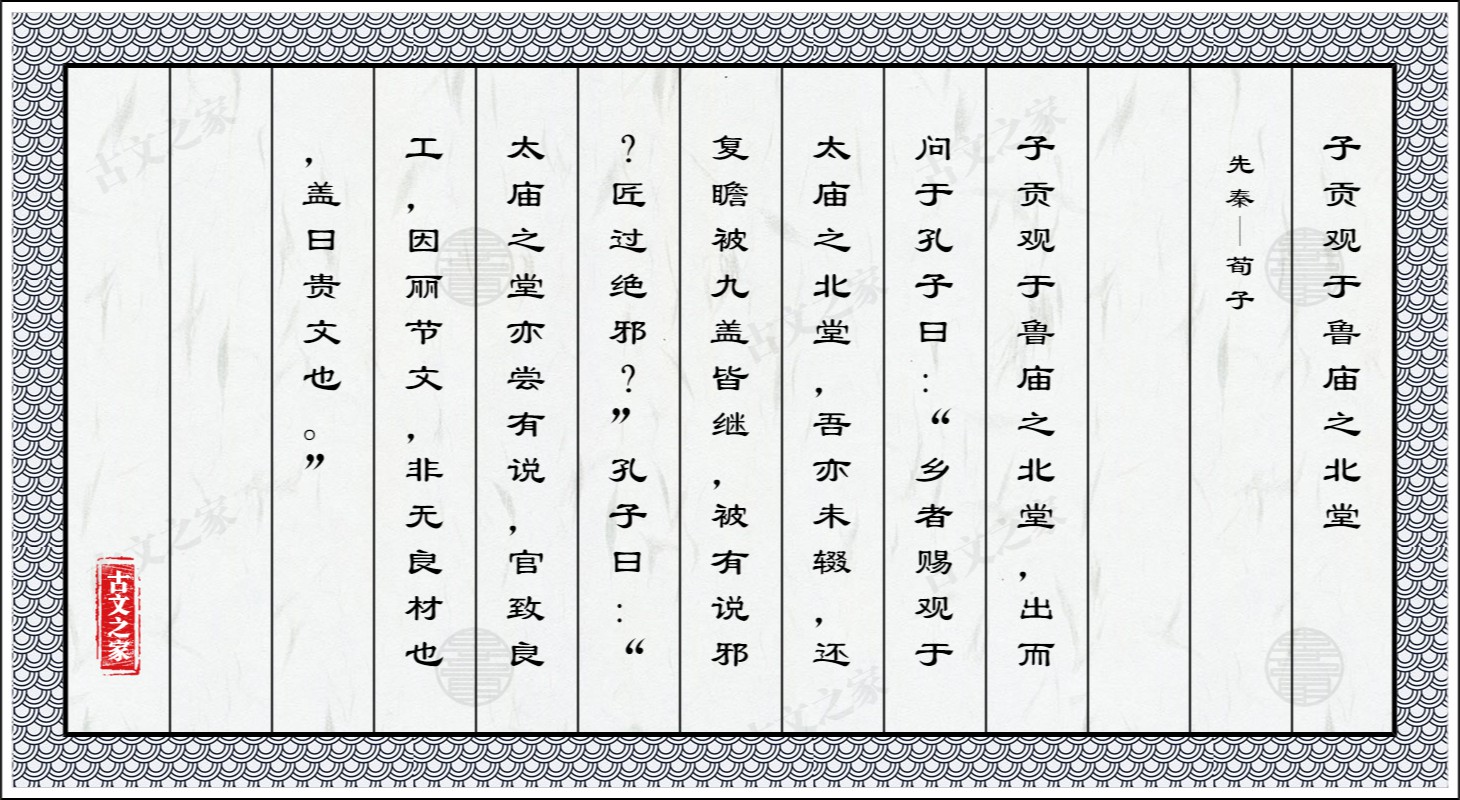 子贡观于鲁庙之北堂
先秦—荀子
子贡观于鲁庙之北堂,出而
问于孔子曰:“乡者赐观于
太庙之北堂,吾亦未辍,还
复瞻被九盖皆继,被有说邪
?匠过绝邪?”孔子曰:“
太庙之堂亦尝有说,官致良
工,因丽节文,非无良材也
,盖曰贵文也。”
古文之家